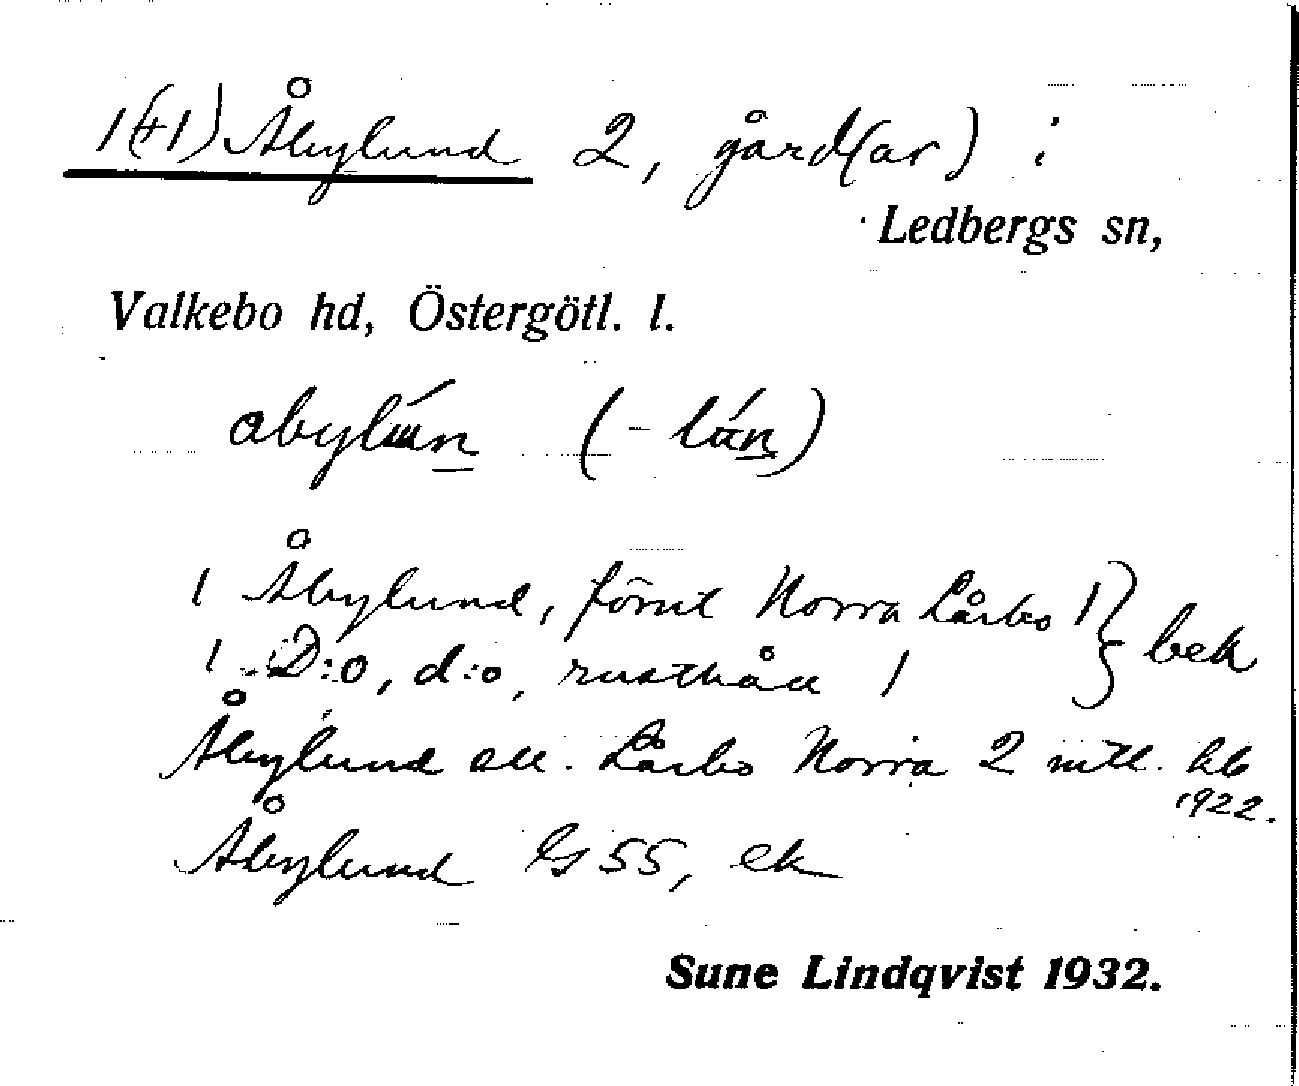 1(+1) Åbylund 2, gård(ar) i
Ledbergs sn,
Valkebo hd, Östergötl. l.
abylún (-lán)
1 Åbylund, förut Norra Lårbo 1 } bek
1 D:o, d:o, rusthåll 1
Åbylund ell. Lårbo Norra 2 mtl. hb
1922.
Åbylund G 55, ek
Sune Lindqvist 1932.